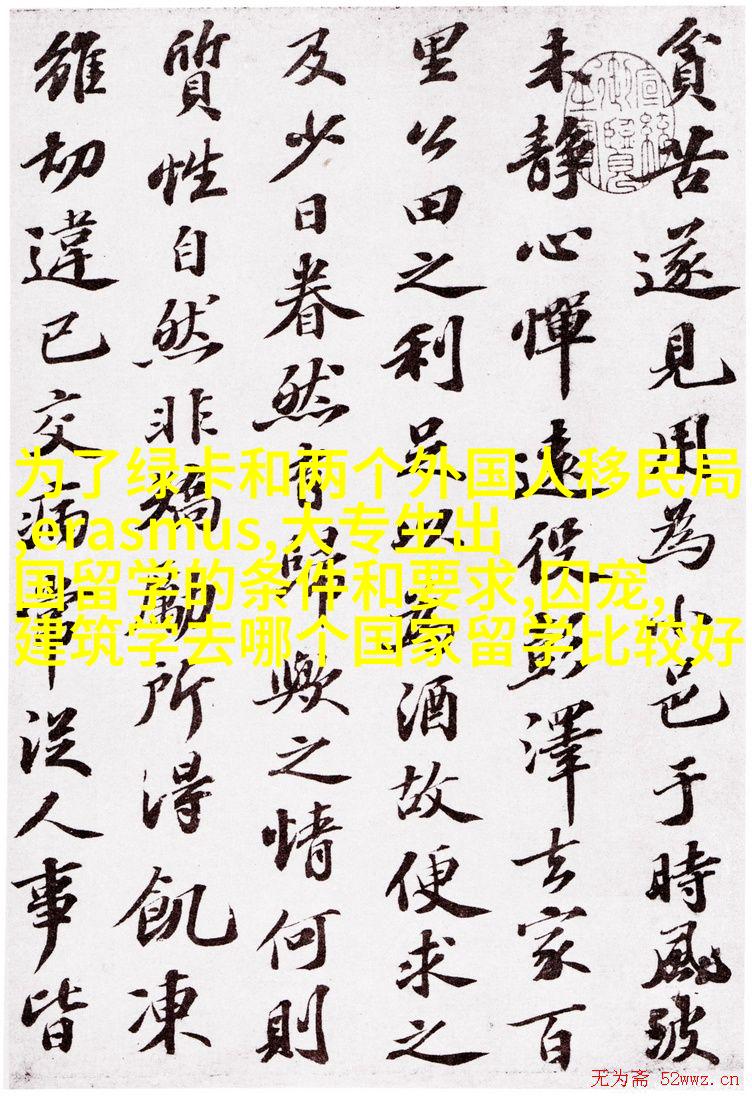 貧苦遂見用為小邑于時風波
未静心憚遠役彭澤去家百
里公田之利足以為酒故便求之
及少日眷然有歸歟之情何則
質性自然非矯勵所得飢凍
雖切違已交病甞從人事皆
为了绿卡和两个外国人移民局
,erasmus,大专生出
国留学的条件和要求,囚宠,
建筑学去哪个国家留学比较好
无为斋 52wwz.cn